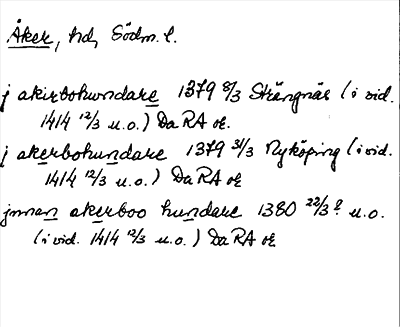 Åker, hd, Södm. l.
j akirbohundare 1379 8/3 Strängnäs (i vid.
1414 12/3 u.o.) DaRA or.
j akerbohundare 1379 31/3 Nyköping (i vid.
1414 12/3 u.o.) DaRA or
jnnan akerboo hundare 1380 22/3 ? u.o.
(i vid. 1414 12/3 u.o.) DaRA or